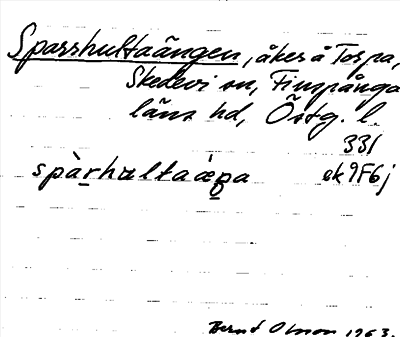 Sparrhultaängen, åker å Torpa,
Skedevi sn, Finspånga
läns hd, Östg. l.
331
ek 9F6j
Bernt Olsson 1963.